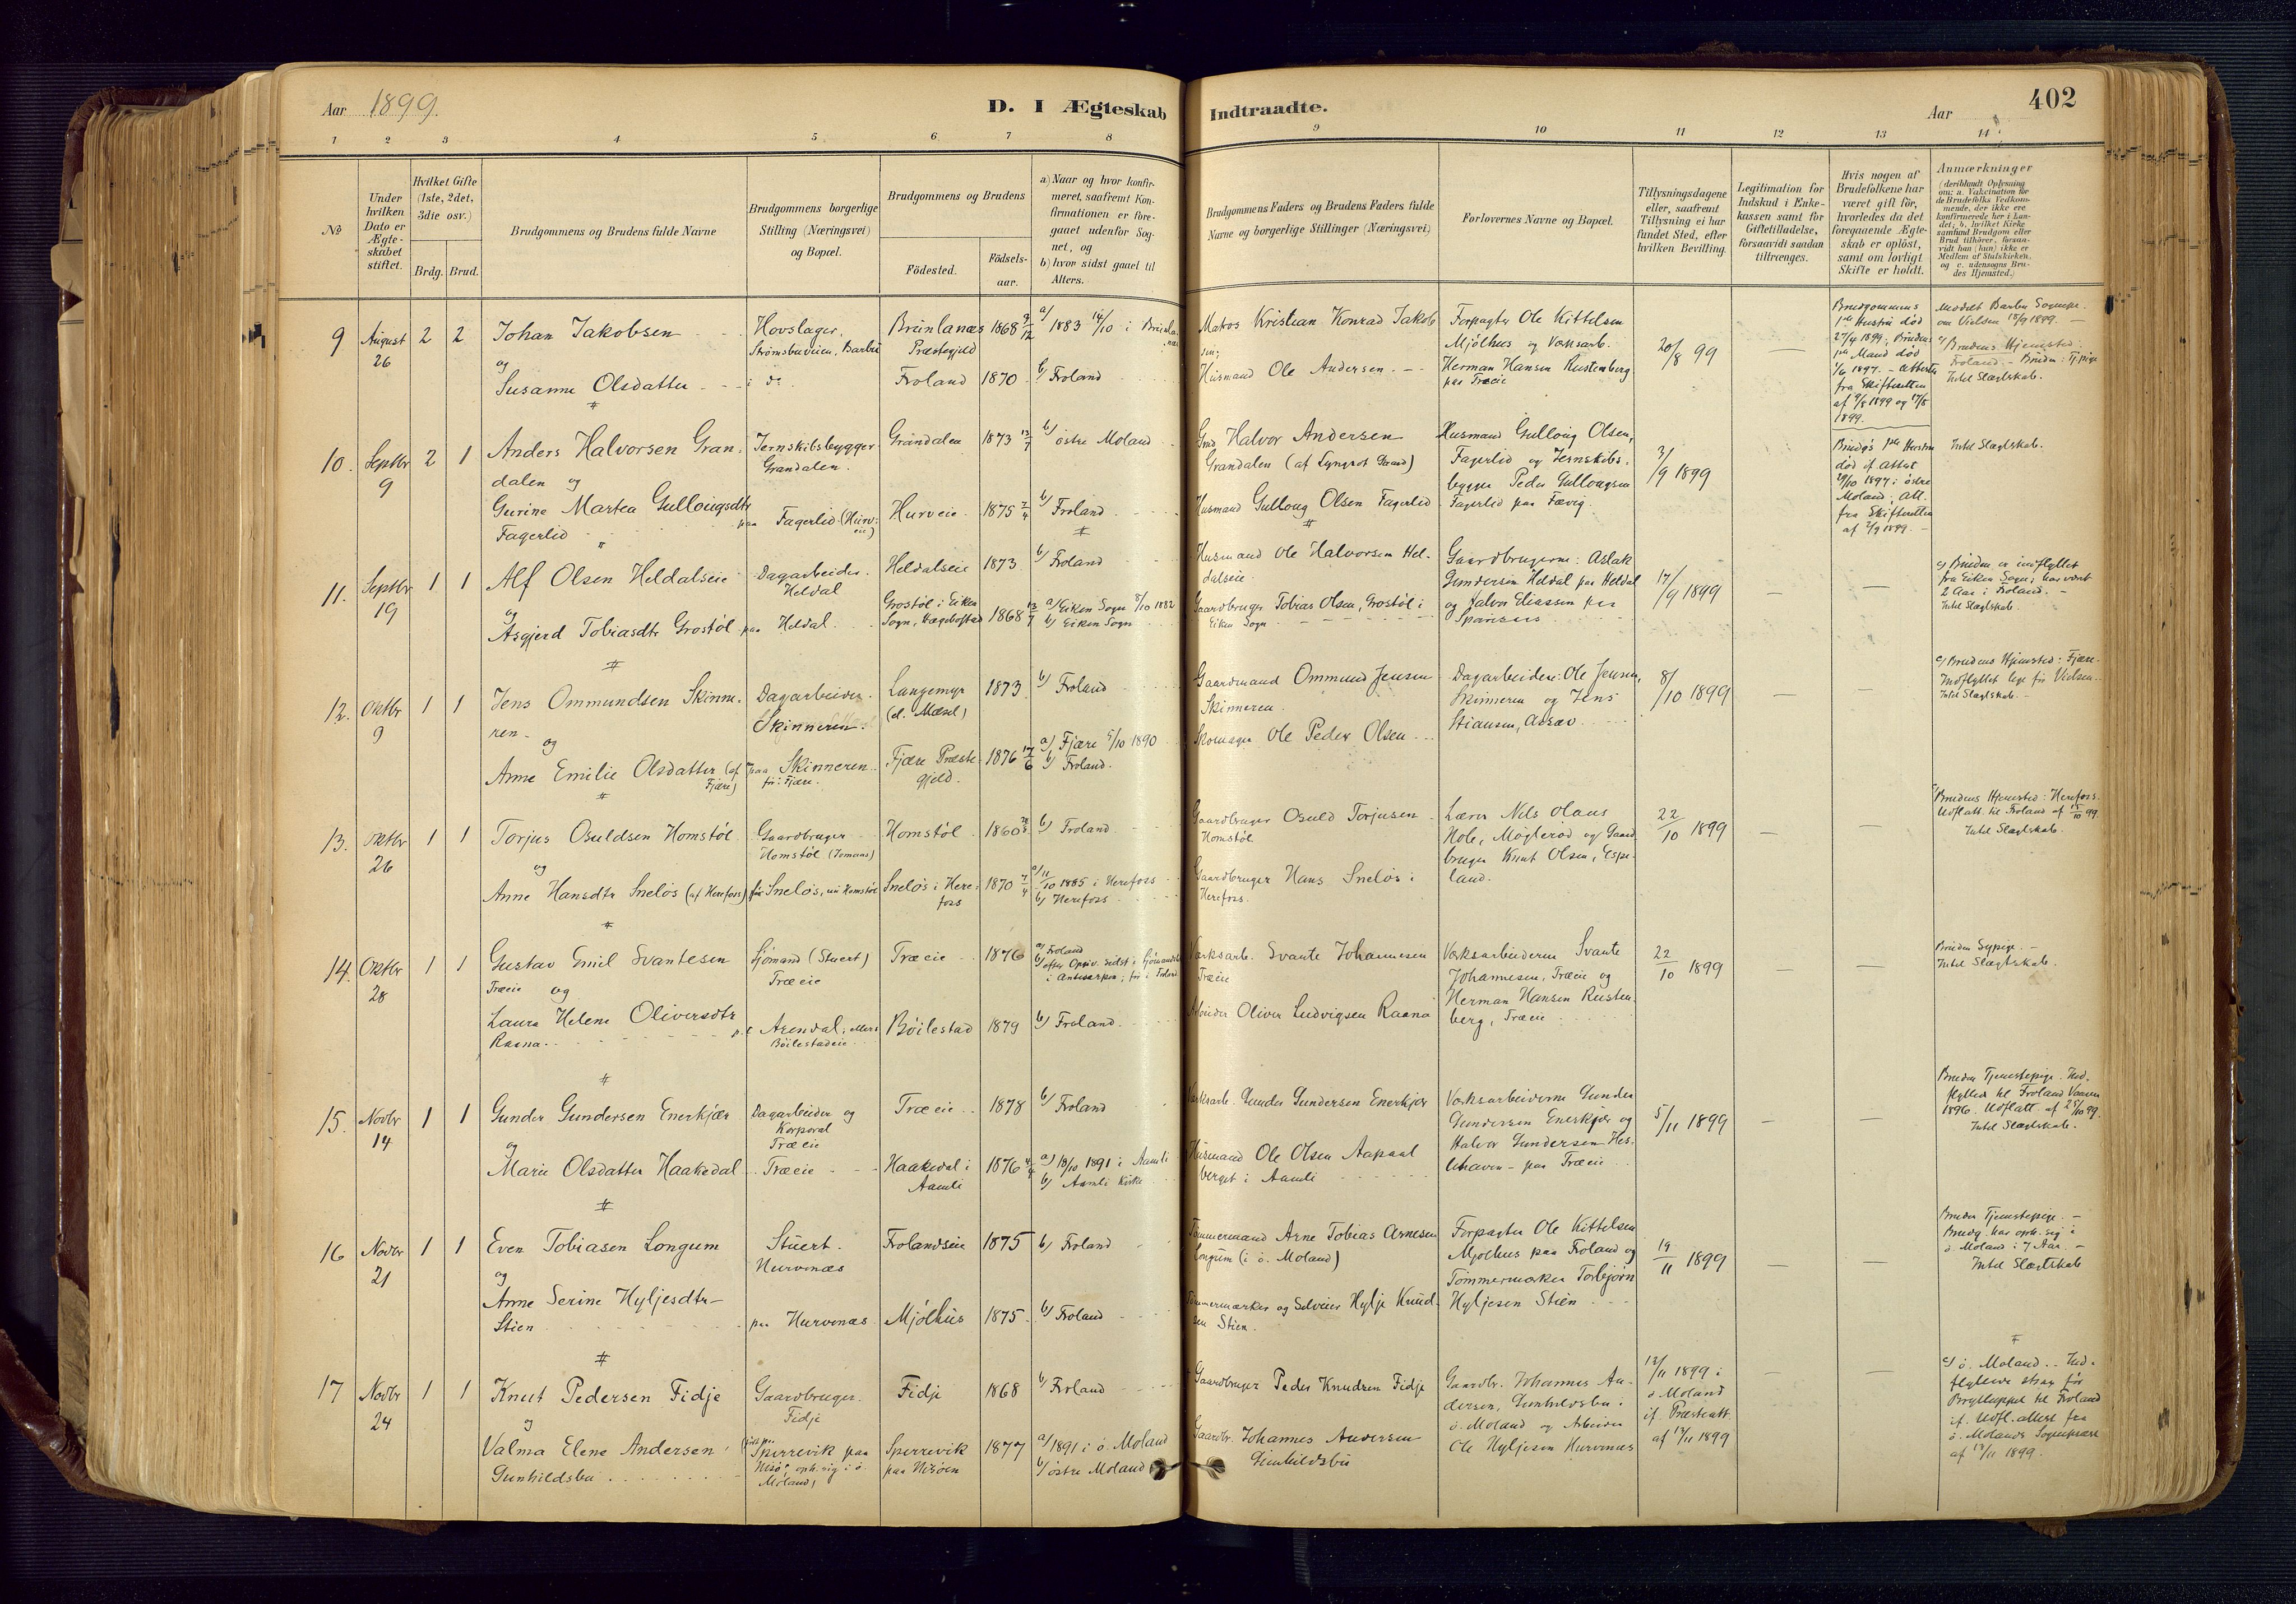 Aar 1899.
D. I Ægteskab Indtraadte.
Aar
402
1 2 3 4 5 6 7 8 9 10 11 12 13 14
No
Under hvilken Dato er Ægteskabet stiftet.
Hvilket Gifte (1ste, 2det, 3die osv.)
Brdg. Brud.
Brudgommens og Brudens fulde Navne
Brudgommens borgerlige Stilling (Næringsvei) og Bopæl.
Brudgommens og Brudens
Födested.
Födsels-aar.
a) Naar og hvor konfirmeret, saafremt Konfirmationen er foregaaet udenfor Sognet, og
b) hvor sidst gaaet til Alters.
Brudgommens Faders og Brudens Faders fulde Navne og borgerlige Stillinger (Næringsvei)
Forlovernes Navne og Bopæl.
Tillysningsdagene eller, saafremt Tillysning ei har fundet Sted, efter hvilken Bevilling.
Legitimation for Indskud i Enkekassen samt for Giftetilladelse, forsaavidt saadan tiltrænges.
Hvis nogen af Brudefolkene har været gift för, hvorledes da det foregaaende Ægteskab er oplöst, samt om lovligt Skifte er holdt.
Anmærkninger
(deriblandt Oplysning om: a. Vakcination for de Brudefolks Vedkommende, der ikke ere konfirmerede her i landet; b. hvilket Kirkesamfund Brudgom eller Brud tilhörer, forsaavidt han (hun) ikke er Medlem af Statskirken, og c. udensogns Brudes Hjemsted.)
9 August 26 2 2
Johan Jakobsen
og
Susanne Olsdatter
Hovslager.
Strømsbuveien, Barbu
i do
Brunlanæs Præstegjeld 1868 9/12
Froland 1870
a) 1883 14/10 i Brunlanæs
b) Froland
Matros Kristian Konrad Jakobsen;
Husmand Ole Andersen.
Forpagter Ole Kittelsen
Mjølhus og Værksarb.
Herman Hansen Rustenberg
paa Træeie
20/8 99
—
Brudgommens
1ste Hustru død
27/4 1899; Brudens
1ste Mand død
1/6 1897. - Attester
fra Skifteretten
af 9/8 1899 og 17/8
1899.
Meddelt Barbu Sognepr.
om Vielsen 18/9 1899. —
c) Brudens Hjemsted
Froland. - Bruden: Tjpige
Intet Slægtskab.
10. Septbr 9 2 1
Anders Halvorsen Grandalen
og
Gurine Martea Gullougsdtr
Fagerlid
Jernskibsbygger
Grandalen.
paa Fagerlid (Hurveie)
Grandalen 1873 13/7
Hurveie 1875 2/4
b) østre Moland
b) Froland
Halvor Andersen
Grandalen
Husmand Gulloug Olsen Fagerlid
Husmand Gulloug Olsen,
Fagerlid og Jernskibsbygger
Peder Gullougsen
Fagerlid paa Fævig.
3/9 1899
Brudgs 1ste Hustru
død if. Attest
29/10 1897 i østre
Moland; Att.
fra Skifteretten
af 2/9 1899. —
Intet Slægtskab.
11. Septbr 19 1 1
Alf Olsen Heldalseie
og
Asgjerd Tobiasdtr Grostøl
Dagarbeider.
Heldal
paa Heldal
Heldalseie 1873
Grostøl i Eiken
Sogn, Hægebostad 1868 13/7
b) Froland
a) Eiken Sogn 8/10 1882
b) Eiken Sogn
Husmand Ole Halvorsen Heldalseie
Gaardbruger Tobias Olsen, Grostøl i
Eiken Sogn
Gaardbrugerne: Aslak
Gundersen Heldal paa Heldal
og Halvor Eliassen paa
17/9 1899
— —
c) Bruden er indflyttet
fra Eiken Sogn; har vært
2 Aar i Froland. —
Intet Slægtskab.
12. Oktbr 9 1 1
Jens Ommundsen Skinneren
og
Anne Emilie Olsdatter (af Fjære)
Dagarbeider.
Skinneren.
paa Skinneren
før: Fjære.
Langemyr
(d. Mæsel) 1873
Fjære Præstegjeld. 1876 17/6
b) Froland
a) Fjære 5/10 1890
b) Froland.
Gaardmand Ommund Jensen
Skinneren.
Skomager Ole Peder Olsen
Dagarbeidere: Ole Jensen,
Skinneren og Jens
Stiansen,
8/10 1899
— —
c) Brudens Hjemsted: Fjære.
Indflyttet lige før Vielsen.
Intet Slægtskab. —
13. Oktbr 26 1 1
Torjus Osuldsen Homstøl
og
Anne Hansdtr Sneløs (af Herefoss)
Gaardbruger
Homstøl (Tomans)
før Sneløs, nu Homstøl
Homstøl 1860
Sneløs i Herefoss 1870 7/4
b) Froland
a) 11/10 1885 i Herefoss
b) Herefoss
Gaardbruger Osuld Torjusen
Homstøl
Gaardbruger Hans Sneløs i
Herefoss.
Lærer Nils Olaus
Hole, Møglerød og Gaardbruger
Knut Olsen, Espeland.
22/10 1899
— —
Brudens Hjemsted: Herefoss.
Udflatt. til Froland af 15/10 99.
Intet Slægtskab.
14. Oktbr 28 1 1
Gustav Emil Svantesen
Træeie og
Laura Helene Oliversdtr
Raana
Sjømand (Stuert)
Træeie
Arendal;
Bøilestadeie
Træeie 1876
Bøilestad 1879
a) Froland
b) efter Opgiv. sidst i Sjømandsk.
i Antwerpen; før i Froland
b) Froland.
Værksarb. Svante Johannesen
Træeie
Arbeider Oliver Ludvigsen Raana
Værksarbeiderne Svante
Johannesen, Træeie og
Herman Hansen Rustenberg,
Træeie
22/10 1899
— —
Bruden Sypige. —
Intet Slægtskab.
15. Novbr 14 1 1
Gunder Gundersen Enerkjær
og
Marie Olsdatter Haakedal
Dagarbeider og
Korporal
Træeie
Træeie
Træeie 1878
Haakedal i
Aamli 1876 4/4
b) Froland
a) 18/10 1891 i Aamli
b) Aamli Kirke
Værksarb. Gunder Gundersen Enerkjær
Husmand Ole Olsen Aapaalberget
i Aamli
Værksarbeiderne Gunder
Gundersen Enerkjær og
Halvor Gundersen Heslehaven
- paa Træeie
5/11 1899
— —
Bruden Tjenestepige. Indflyttet
til Froland Vaaren
1896. Udflatt. af 25/10 99.
Intet Slægtskab.
16 Novbr 21 1 1
Even Tobiasen Longum
og
Anne Serine Hyljesdtr
Stien
Stuert.
Hurvenæs
paa Hurvenæs
Frolandseie 1875
Mjølhus 1875
b) Froland
b) Froland
Tømmermand Arne Tobias Arnesen
Longum (i ø. Moland)
Tømmermærker og Selveier Hylje Knudsen
Stien.
Forpagter Ole Kittelsen
Mjølhus paa Froland og
Tømmermærker Torbjørn
Hyljesen Stien
19/11 1899
— —
Bruden Tjenestepige. —
Brudg. har oph. sig i
ø. Moland i 7 Aar. —
Intet Slægtskab
17 Novbr 24 1 1
Knut Pedersen Fidje
og
Valma Elene Andersen
Gunhildsbu
Gaardbruger.
Fidje
Sperrevik paa
Nisø oph. sig i ø.
Moland)
Fidje 1868
Sperrevik
paa Nisøen 1877
b) Froland
a) 1891 i ø. Moland
b) østre Moland
Gaardbruger Peder Knudsen Fidje
Gaardbr. Johannes Andersen
Gunhildsbu
Gaardbr. Johannes Andersen,
Gunhildsbu i
ø. Moland og Arbeider
Ole Hyljesen Hurvenæs
12/11 1899 i
ø Moland
if. Præsteatt.
af 13/11 1899
— —
c) ø. Moland. - Indflyttede
strax før
Brylluppet til Froland
if. Udfl.attest fra
ø. Molands Sognepræst
af 13/11 1899.